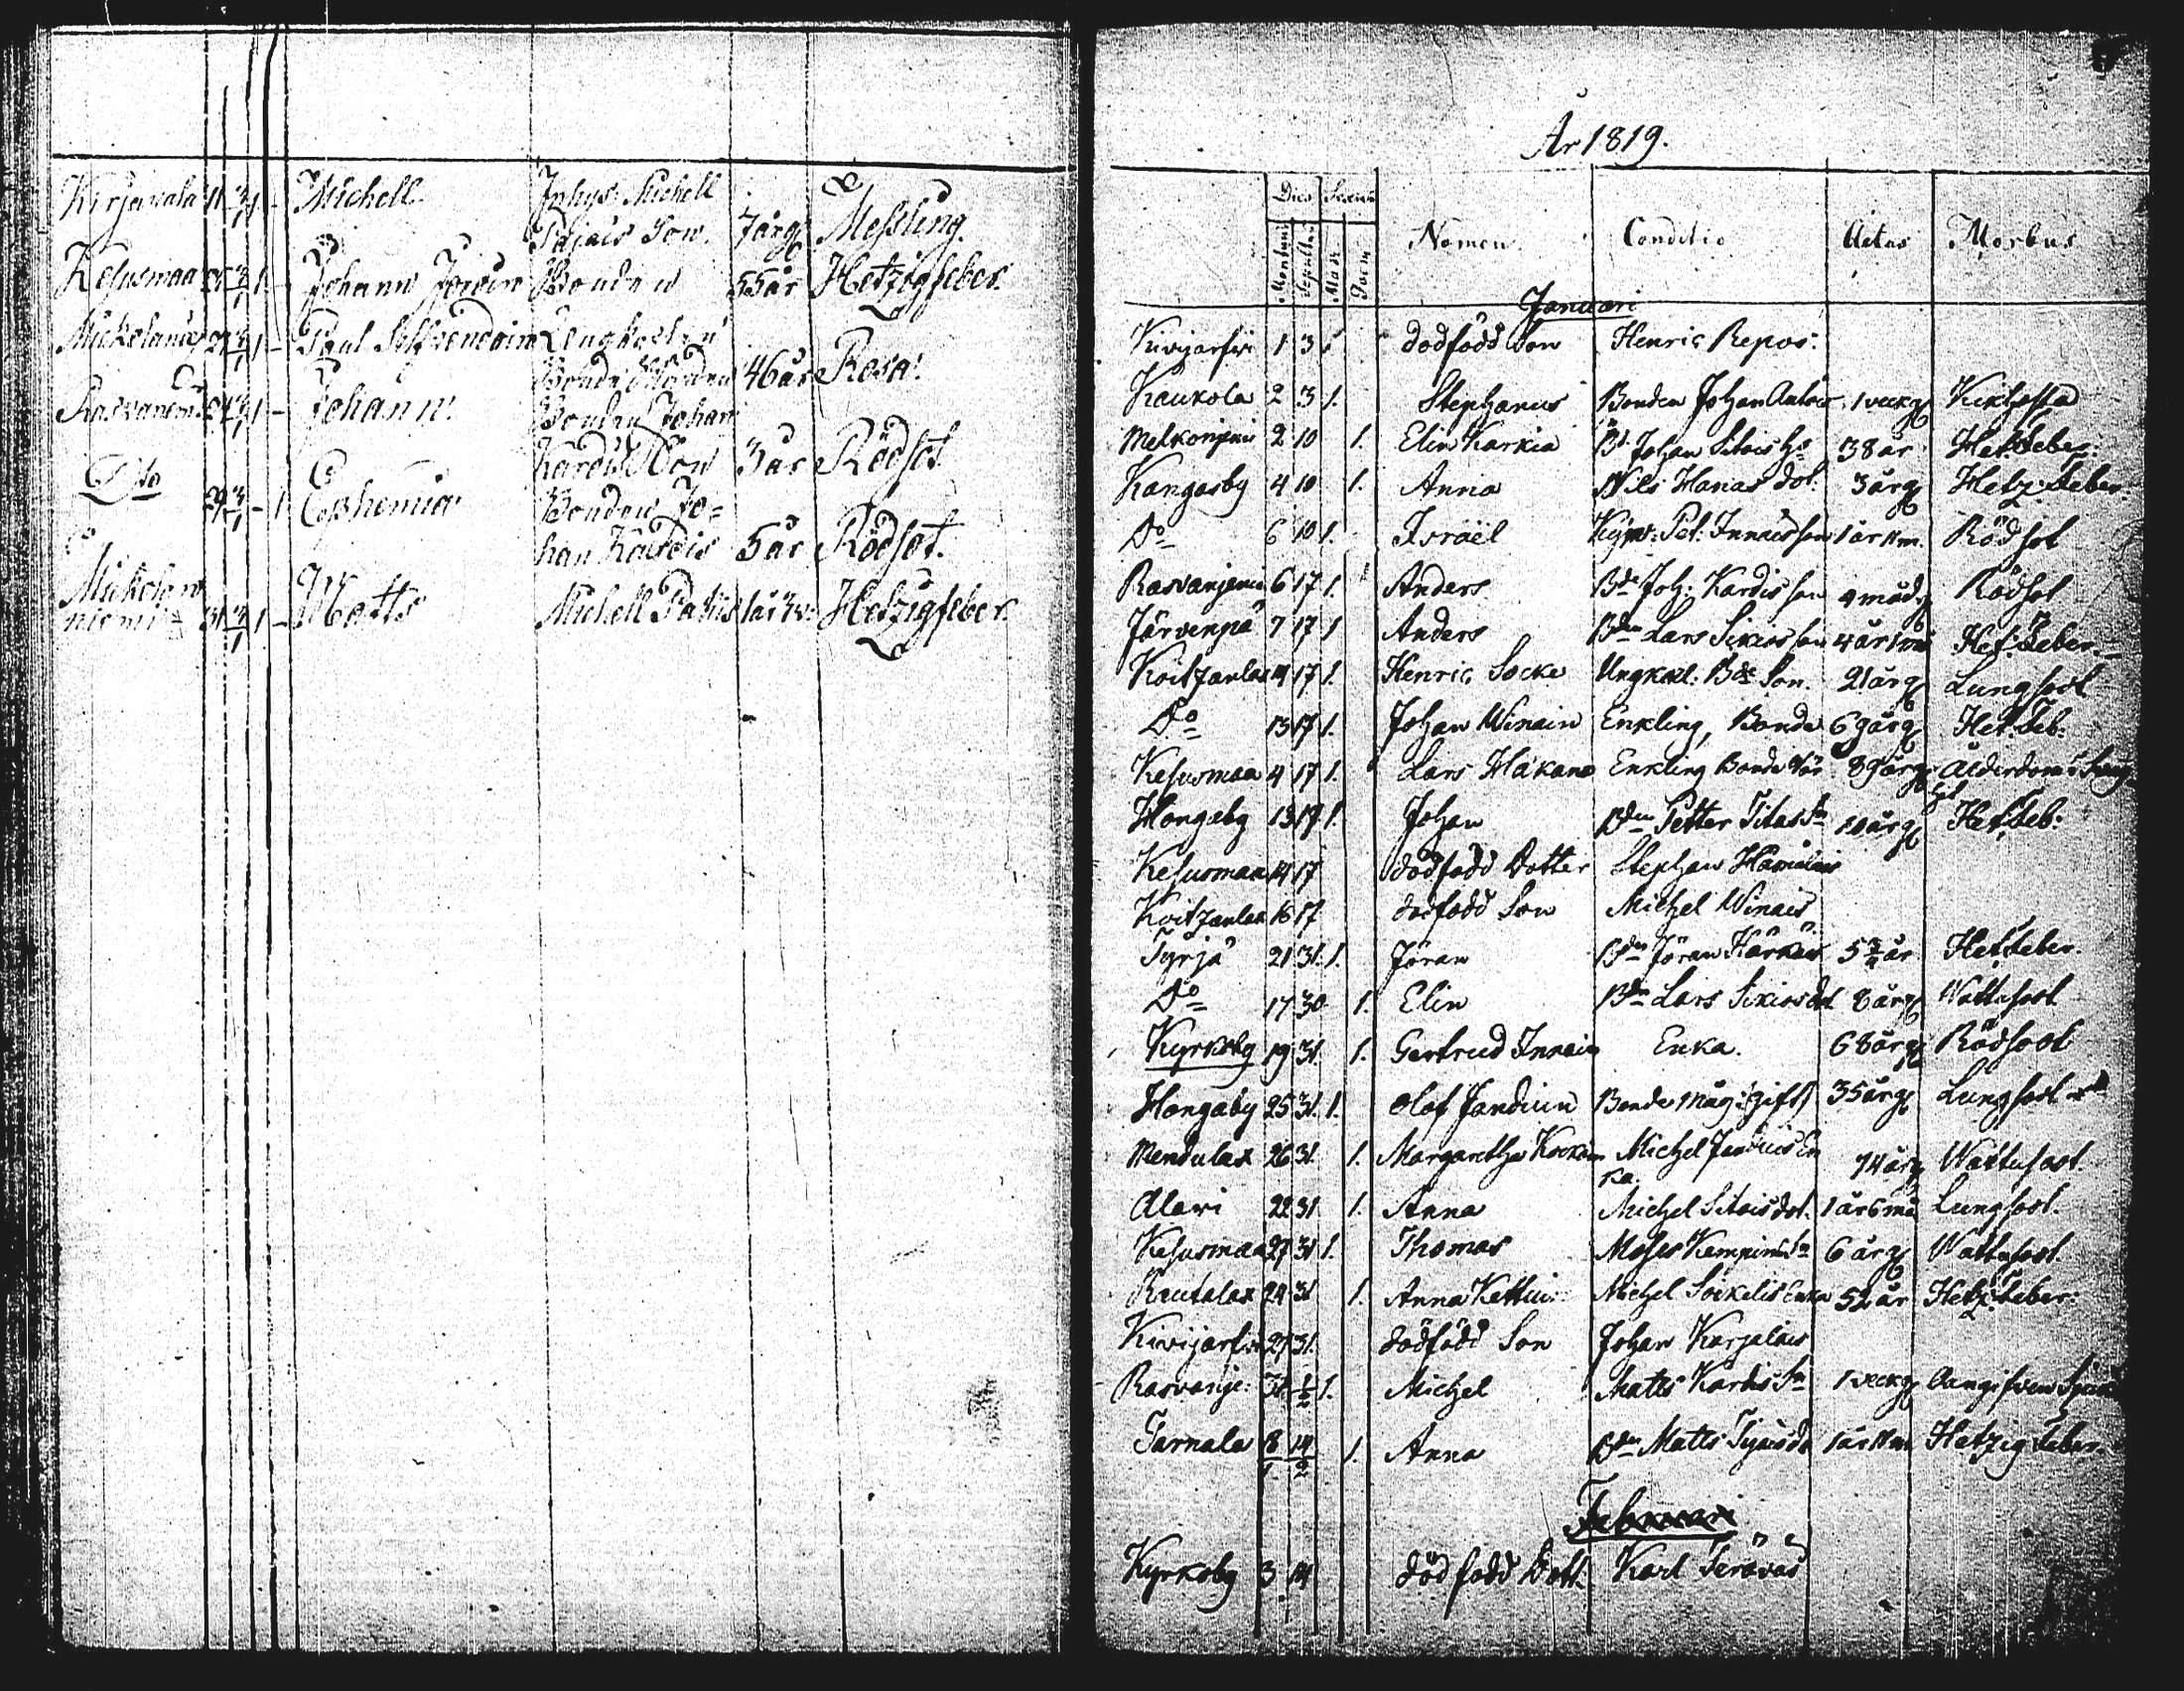 Kirjavala 11 3/1 1 - Michell Inhys: Michell
Pajais Son. 7 årg Messling.
Kesusmaa 25 3/1 1 - Johann Bonden 55 år Hetzigfeber.
29 3/1 1 - Paul
Bonde 46 år Rosa.
3/1 1 - Johann. Bonden Johan
Kardis Son 3 år Rödsot
Dito 29 3/1 - 1 Ephemia Bonden Jo=
han Kardis 5 år Rödsot.
niemi 31 3/1 1 - Matts Michell Hetzigfeber.
År 1819.
Dies Sexus
Mortuus Sepultus Mas Foem Nomen Conditio Aetas Morbus
Januari
Kivijärfvi 1 3 dödfödd Son Henric Repos:
Kaukola 2 3 1. Stephanus Bonden Johan 1 veckg Kikhosta
2 10 1. Elin Karkia Bd. Johan Sitois Hu 38 år Het:feber:
Kangasby 4 10 1. Anna Nils Hanas dot: 3 årg Hetz: feber.
Do 6 10 1. Israël Pet: Innais son 1 år 11 m. Rödsot
Rasvaniemi 6 17 1. Anders Bde Joh: Kardis son 4 mådg Rödsot
Järvenpä 7 17 1 Anders Bden Lars Sikiös son 4 år Het: feber.
Koitzanlax 14 17 1. Henric Socke Ungkarl: Bde Son. 21 årg Lungsoot
Do 13 17 1. Johan Winain Enkling, Bonde 69 årg Het: feb:
Kesusmaa 4 17 1. Lars Håkana Enkling Bonde 89 årg Ålderdoms
Hongaby 13 17 1. Johan Bden Petter Titas Sn 10 årg Het: feb:
Kesusmaa 14 17 dödfödd Dotter Stephan Hämäläis
Koitzanlax 16 17 dödfödd Son Michel Winais
Tyrjä 21 31. 1. Jöran Bden Jöran Härkäis 5 3/4 år Het: feber.
Do 17 30 1. Elin Bden Lars Sikiös dot. 8 årg Wattusoot
Kyrkoby 19 31. 1. Gertrud Innain Enka. 68 årg Rödsoot
Hongaby 25 31. 1. Olof Jandiin Bonde måg (gift) 35 årg Lungsoot
Mendulax 26 31. 1. Margaretha Michel Jandiis En
ka. 74 årg Wattusoot
Alavi 22 31 1. Anna Michel Sitois dot. 1 år 6 må Lungsoot.
Kesusmaa 27 31 1. Thomas Moses Kempinis Sn 6 årg Wattusoot.
Rautalax 24 31 1. Anna Kettiu: Michel Soikelis Enka 52 år Hetz: feber:
Kivijärfvi 27 31. dödfödd Son Johan Karjalais
Rasvanje: 31 1/2 1. Michel Matts Kardis Sn 1 veckg Oangifven Sjuk
Tarnala 8/1 14/2 1. Anna Bden Matts 1 år 11 m Hetzig feber.
Februari
Kyrkoby 3 14 dödfödd Dott: Karl Seräväs